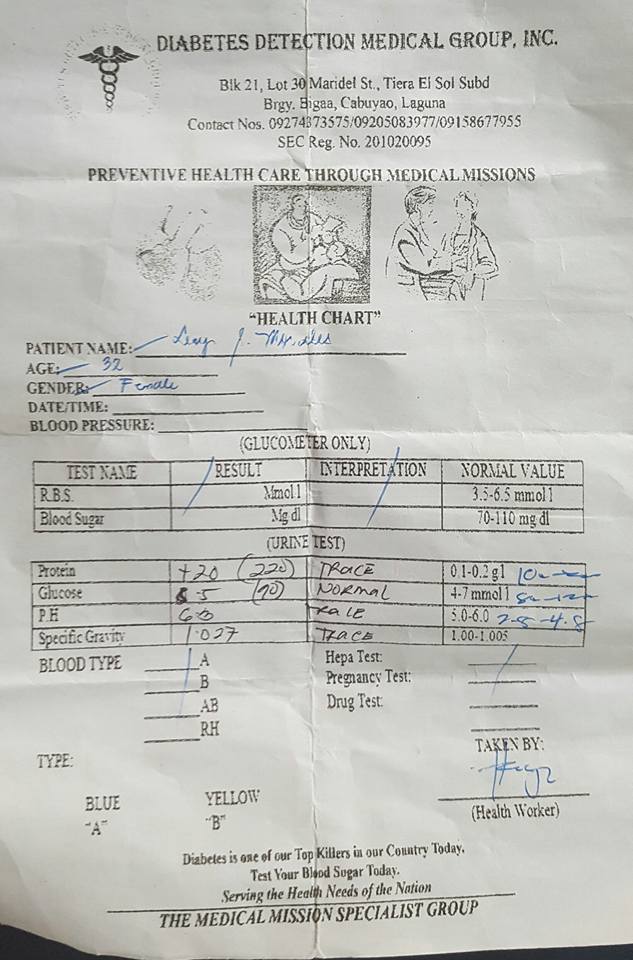 DIABETES DETECTION MEDICAL GROUP, INC.
Blk 21, Lot 30 Maridel St., Tiera El Sol Subd
Brgy. Bigaa, Cabuyao, Laguna
Contact Nos. 09274373575/09205083977/09158677955
SEC Reg. No. 201020095
PREVENTIVE HEALTH CARE THROUGH MEDICAL MISSIONS
"HEALTH CHART"
PATIENT NAME: J.
AGE: 32
GENDER: Female
DATE/TIME:
BLOOD PRESSURE:
(GLUCOMETER ONLY)
TEST NAME RESULT INTERPRETATION NORMAL VALUE
R.B.S. Mmol l 3.5-6.5 mmol l
Blood Sugar Mg dl 70-110 mg dl
(URINE TEST)
Protein +20 (220) TRACE 0.1-0.2 g l
Glucose 5 (90) NORMAL 4-7 mmol l
P.H 5.0-6.0 2.8-4.8
Specific Gravity 1.027 TRACE 1.00-1.005
BLOOD TYPE A Hepa Test:
B Pregnancy Test:
AB Drug Test:
RH
TAKEN BY:
TYPE:
BLUE YELLOW
"A" "B"
(Health Worker)
Diabetes is one of our Top Killers in our Country Today,
Test Your Blood Sugar Today.
Serving the Health Needs of the Nation
THE MEDICAL MISSION SPECIALIST GROUP